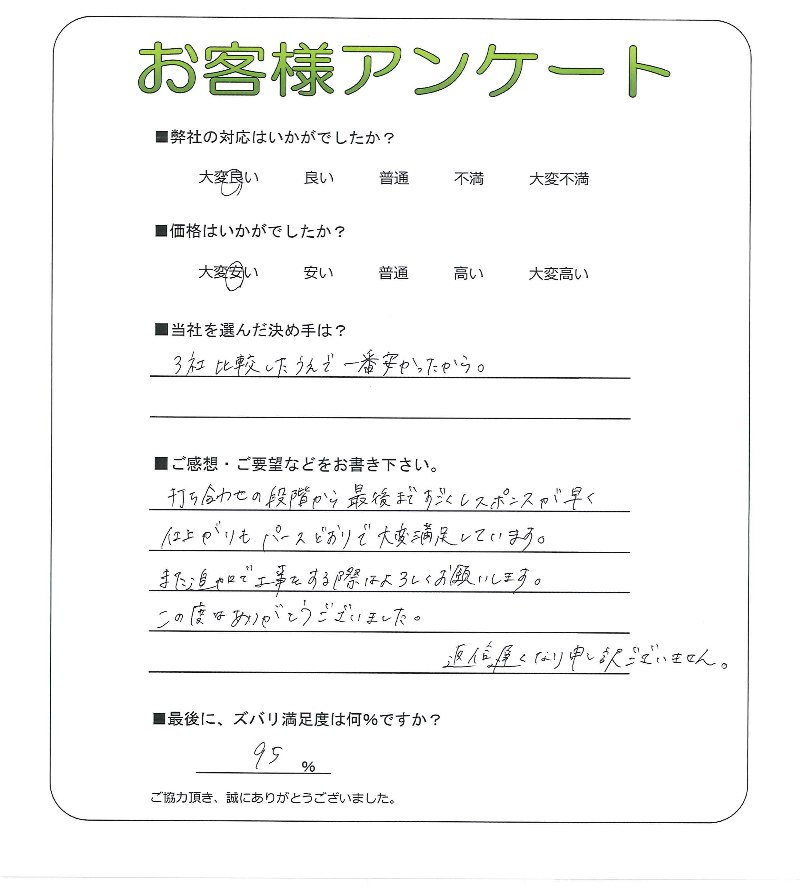 お客様アンケート
■弊社の対応はいかがでしたか？
大変良い 良い 普通 不満 大変不満
■価格はいかがでしたか？
大変安い 安い 普通 高い 大変高い
■当社を選んだ決め手は？
3社比較したうえで一番安かったから。
■ご感想・ご要望などをお書き下さい。
打ち合わせの段階から最後まですごくレスポンスが早く
仕上がりもパースどおりで大変満足しています。
また追加で工事をする際はよろしくお願いします。
この度はありがとうございました。
返信遅くなり申し訳ございません。
■最後に、ズバリ満足度は何%ですか？
95 %
ご協力頂き、誠にありがとうございました。